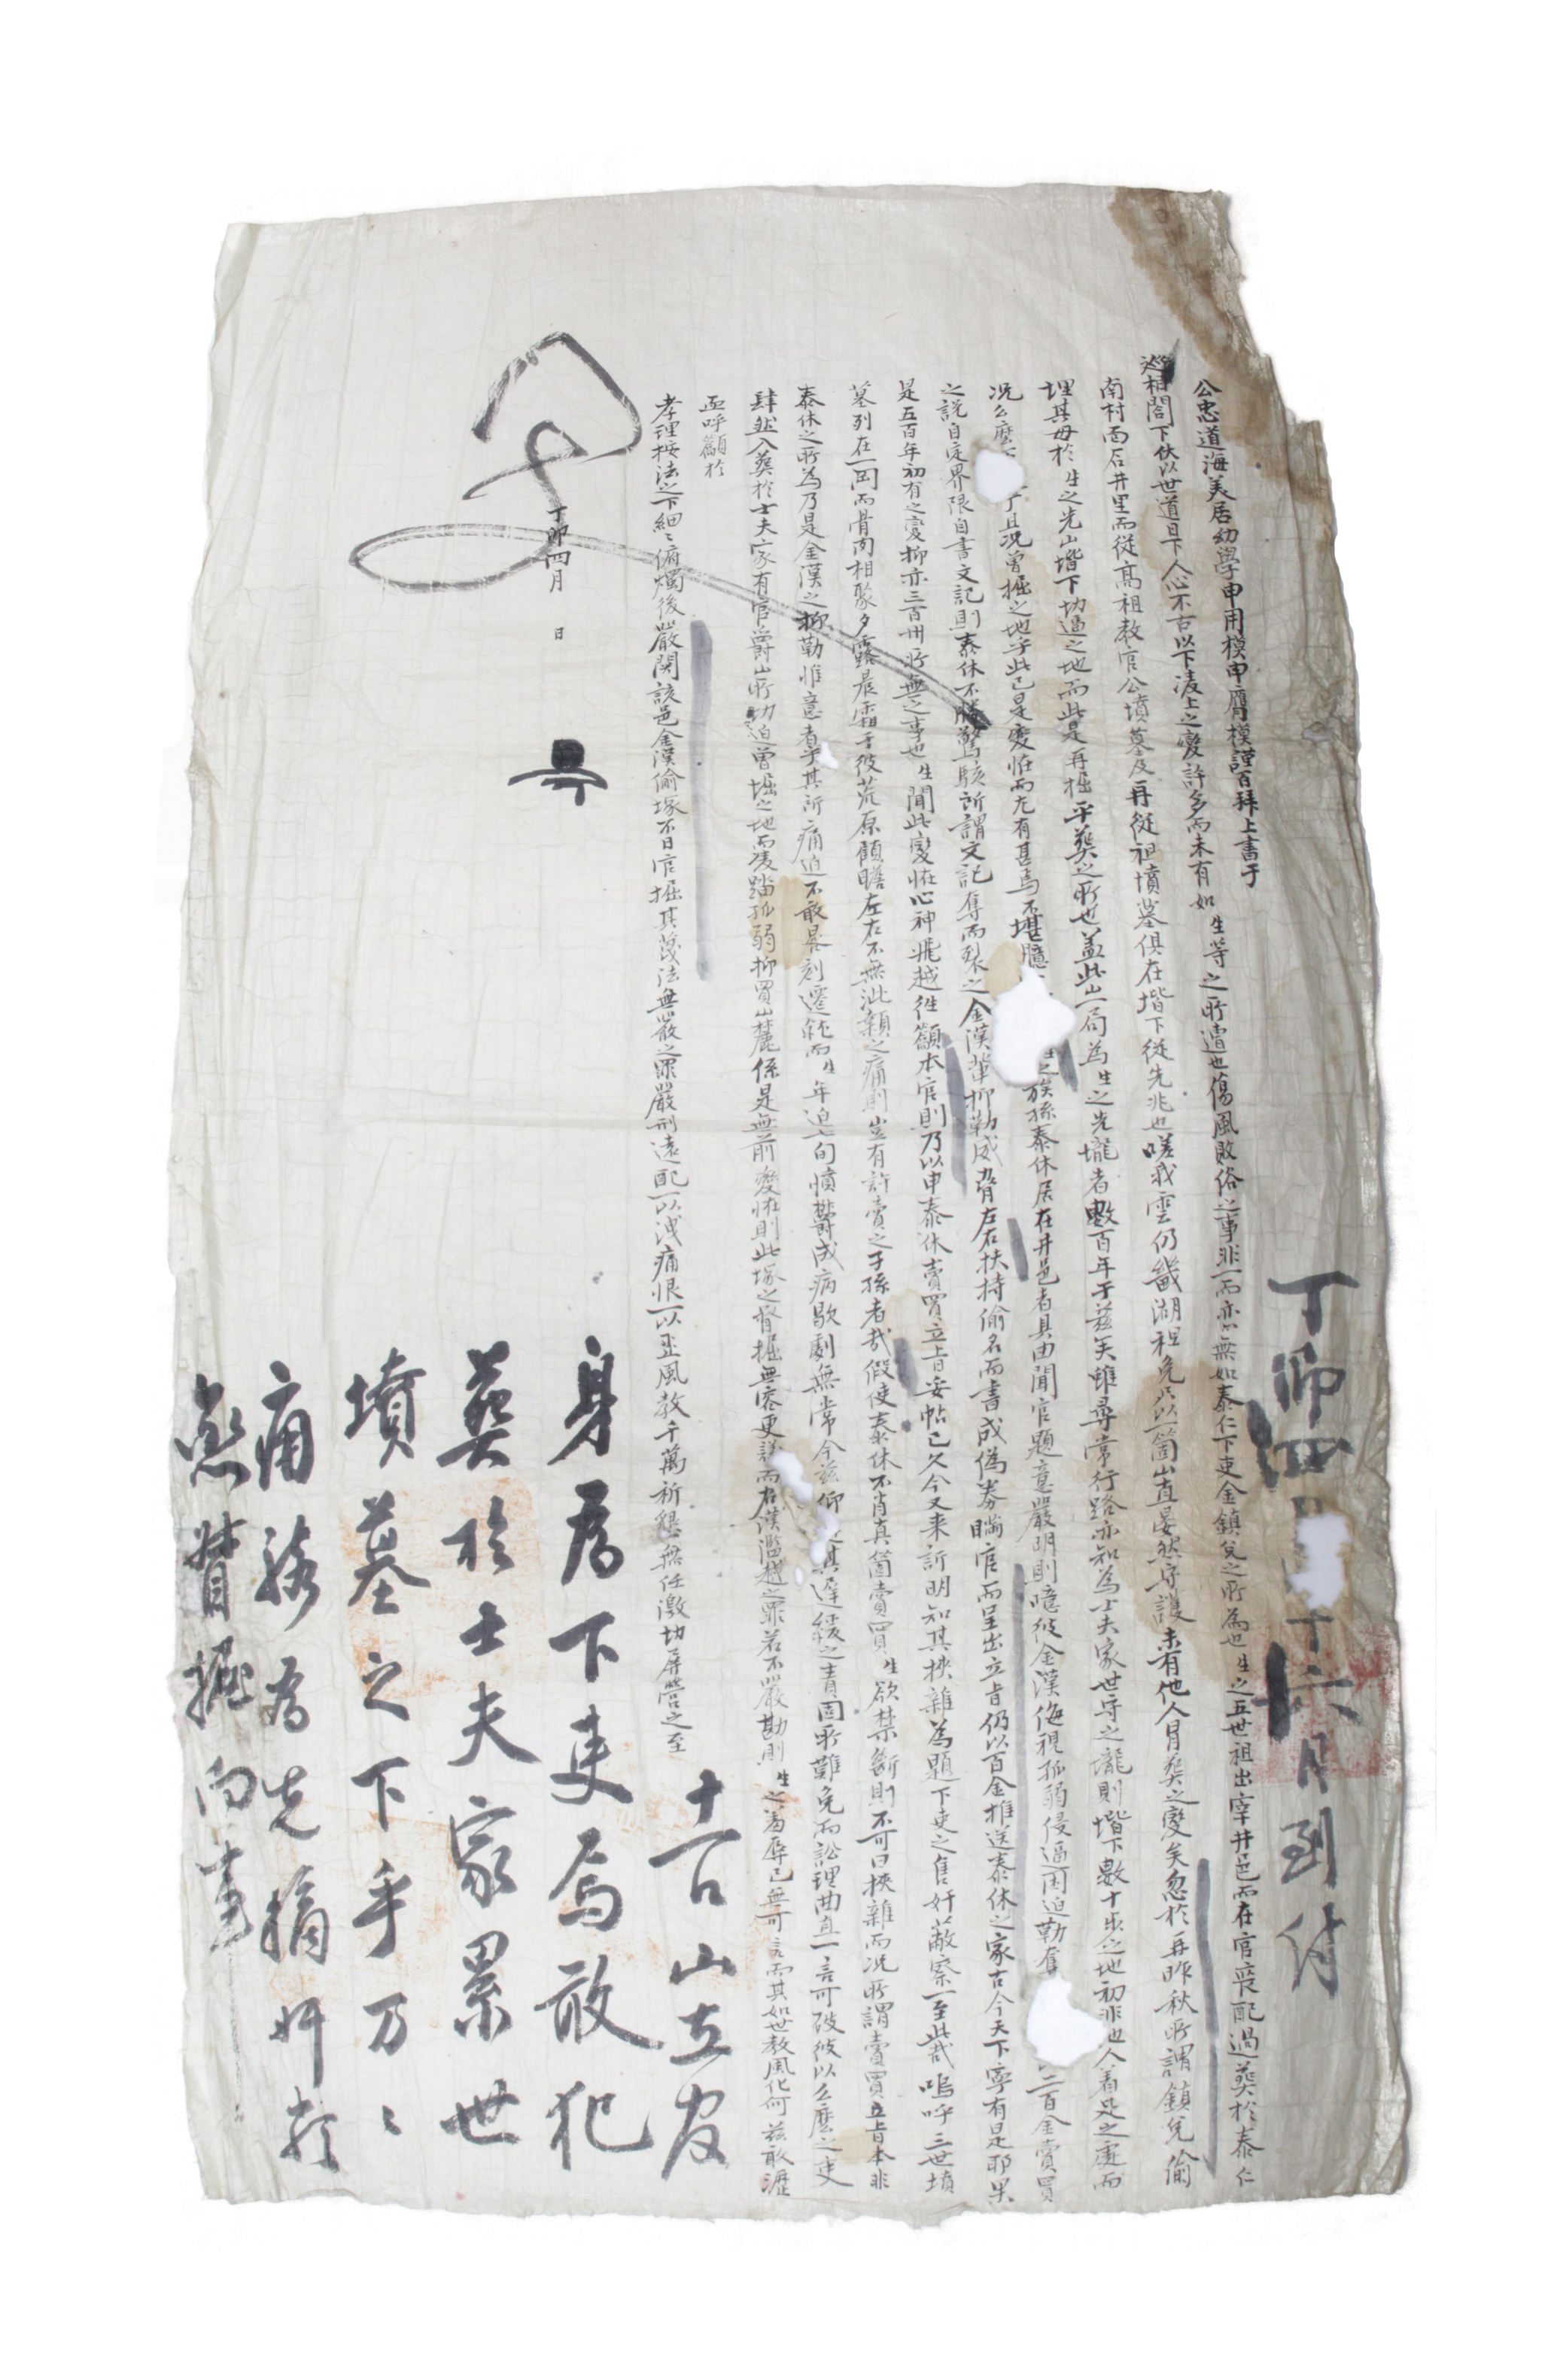 公忠道海美居幼學申用模申膺模謹百拜上書于
巡相閤下伏以世道日下人心不古以下凌上之變許多而未有如生等之所遭也傷風敗俗之事非一而亦無如泰仁下吏金鎭兌之所爲也生之五世祖出宰井邑而在官喪配過葬於泰仁
南村面石井里而從高祖敎官公墳墓及再從祖墳墓俱在堦下從先兆也嗟我雲仍畿湖裡免只以一箇山直晏然守護未有他人冒葬之變矣忽於再昨秋所謂鎭兌偷
埋其母於生之先山堦下切逼之地而此是再掘平葬之所也盖此山一局爲生之先壠者數百年于玆矣雖尋常行路亦知爲士夫家世守之壠則堦下數十步之地初非也人着足之處而
況么麽下 了且況曾掘之地乎此已是變恠而尤有甚焉不堪臆 生之族孫泰休居在井邑者具由聞官題意嚴明則噫彼金漢侮視孤弱侵逼困迫勒奪 二百金賣買
之說自定界限自書文記則泰休不勝驚駭所謂文記奪而裂之金漢輩抑勒威脅左右扶持偷名而書成僞券瞞官而呈出立旨仍以百金推送泰休之家古今天下寧有是耶果
是五百年初有之變抑亦三百卅所無之事也生聞此變恠心神飛越徃籲本官則乃以申泰休賣買立旨妥帖已久今又来訴明知其挾雜爲題下吏之售奸蔽察一至此哉嗚呼三世墳
墓列在一岡而骨肉相聚夕露晨霜于彼荒原顧瞻左右不無泚顙之痛則豈有許賣之子孫者哉假使泰休不肖眞箇賣買生欲禁斷則不可曰挾雜而况所謂賣買立旨本非
泰休之所爲乃是金漢之抑勒惟意者乎其所痛迫不敢晷刻遷就而生年迫七旬憤欝成病歇劇無常今玆仰 其遲緩之責固所難免而訟理曲直一言可破彼以么麽之吏
肆然入葬於士夫家有官爵山所切迫曾掘之地而凌踏孤弱抑買山麓係是無前變恠則此塚之督掘無容更議而右漢濫越之罪若不嚴勘則生之羞辱已無可言而其如世敎風化何玆敢瀝
血呼籲於
孝理按法之下細細俯燭後嚴關該邑金漢偷塚不日官掘其蔑法無嚴之罪嚴刑遠配一以洩痛恨一以正風敎千萬祈懇無任激切屛營之至
丁卯四月 日
丁卯四 十六日到付
十一
山立
身爲下吏焉敢犯
葬於士夫家累世
墳墓之下乎万々
痛駭爲先摘奸
督掘向事